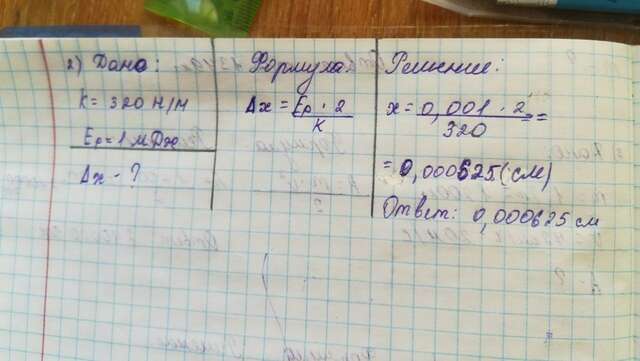 2) Дано:
K = 320 Н/м
Ep = 1 мДж
Δx - ?
Формула:
Δx = Ep · 2 / K
Решение:
x = 0,001 · 2 / 320 =
= 0,000625 (см)
Ответ: 0,000625 см